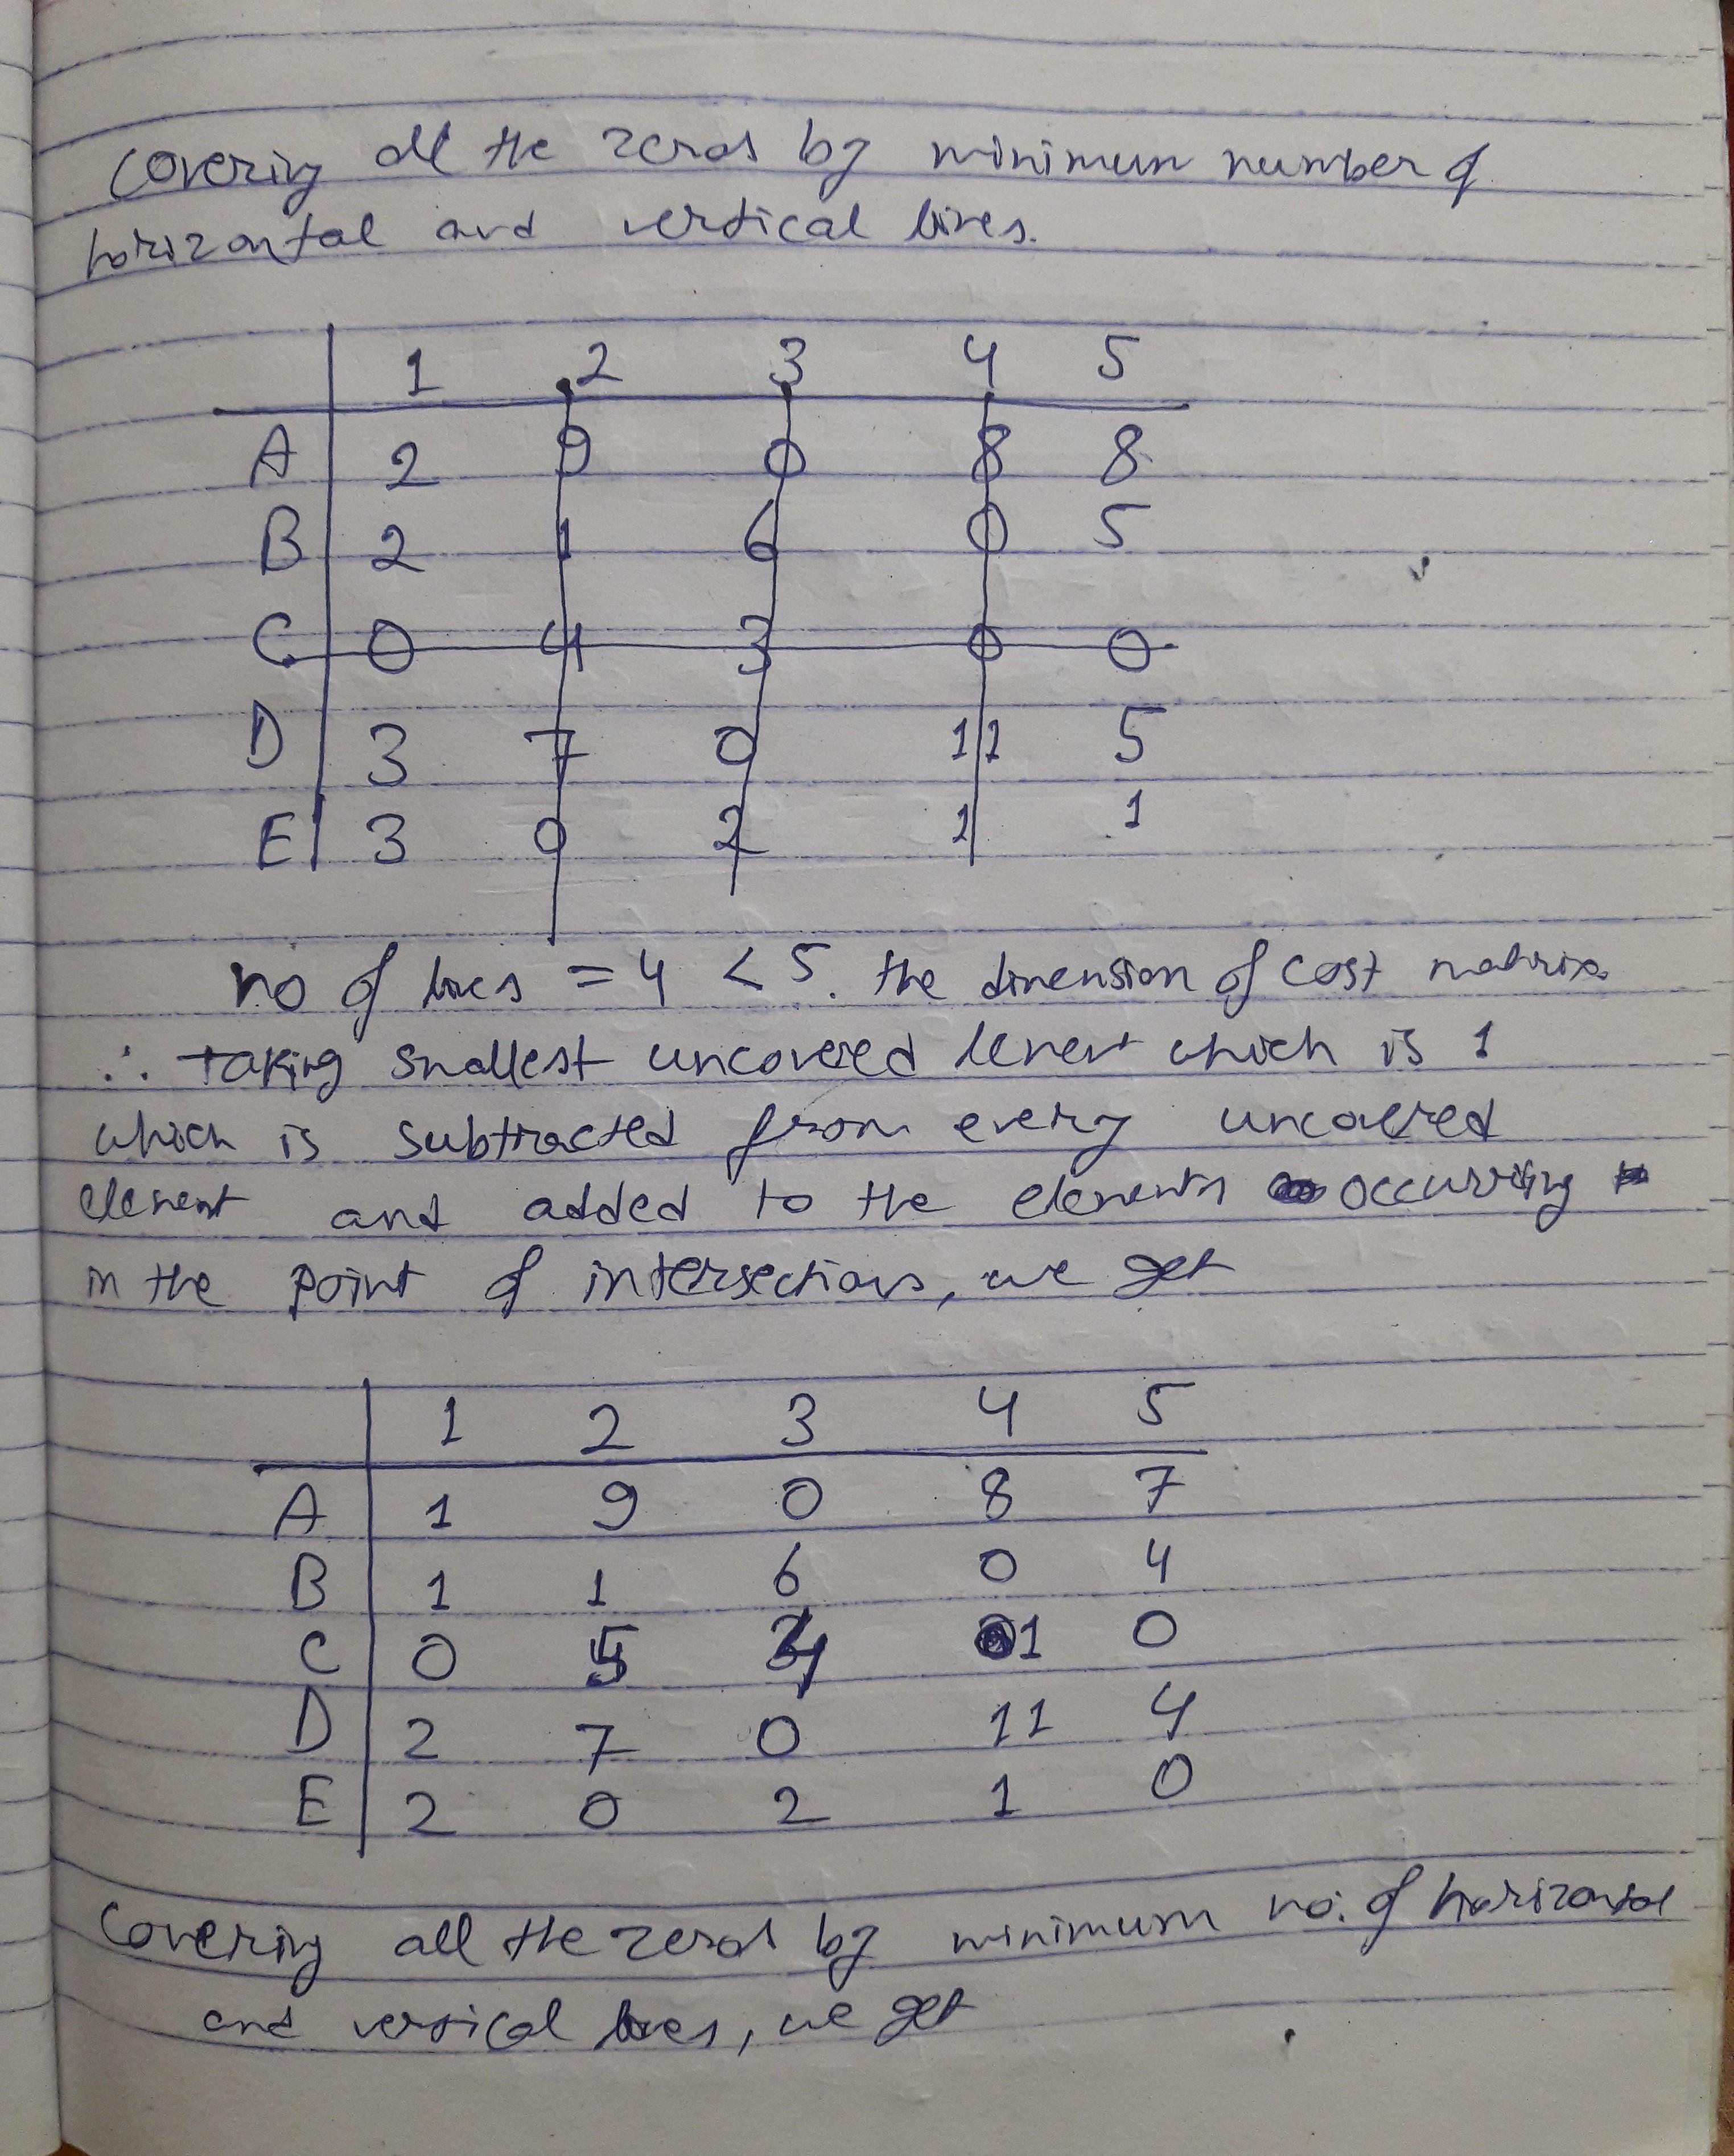 Covering all the zeros by minimum number of
horizontal and vertical lines.
1 2 3 4 5
A 2 9 0 8 8
B 2 1 6 0 5
C 0 4 3 0 0
D 3 7 0 11 5
E 3 0 2 1 1
no of lines = 4 < 5. the dimension of cost matrix
∴ taking smallest uncovered which is 1
which is subtracted from every uncovered
element and added to the elements occurring
in the point of intersections, we get
1 2 3 4 5
A 1 9 0 8 7
B 1 1 6 0 4
C 0 5 4 1 0
D 2 7 0 11 4
E 2 0 2 1 0
Covering all the zeros by minimum no. of horizontal
and vertical lines, we get